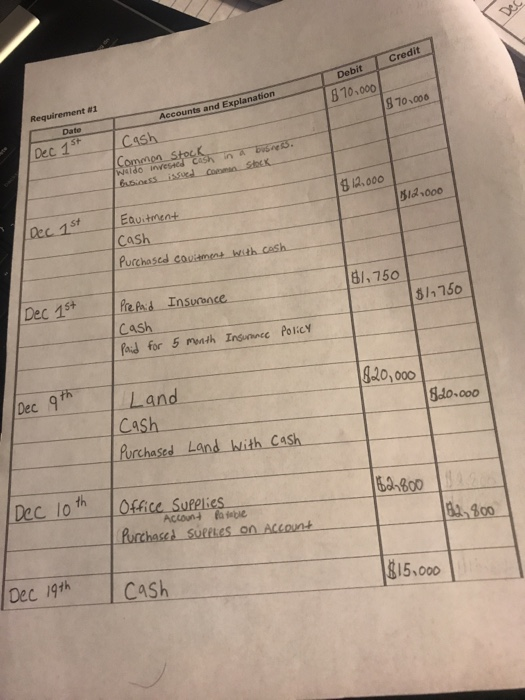 Dec
Requirement #1
Date Accounts and Explanation Debit Credit
Dec 1st Cash $70,000
Common Stock $70,000
Waldo invested cash in a business.
Business issued common stock
Dec 1st Equitment $12,000
Cash $12,000
Purchased equitment with cash
Dec 1st PrePaid Insurance $1,750
Cash $1,750
Paid for 5 month Insurance Policy
Dec 9th Land $20,000
Cash $20,000
Purchased Land With Cash
Dec 10th Office Supplies $2,800
Account $2,800
Purchased on Account
Dec 19th Cash $15,000